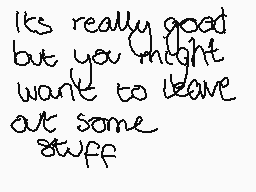 Its really good
but you might
want to leave
out some
stuff